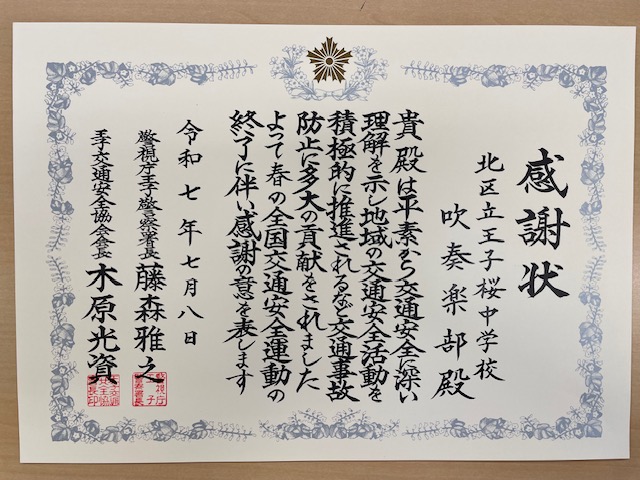 感謝状
北区立王子桜中学校
吹奏楽部殿
貴殿は平素から交通安全に深い
理解を示し地域の交通安全活動を
積極的に推進されるなど交通事故
防止に多大の貢献をされました
よって春の全国交通安全運動の
終了に伴い感謝の意を表します
令和七年七月八日
警視庁王子警察署長 藤森雅之
王子交通安全協会会長 木原光資